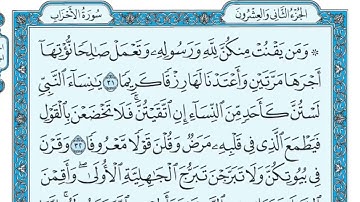 الجزء الثاني والعشرون سورة الأحزاب
۞ وَمَن يَقۡنُتۡ مِنكُنَّ لِلَّهِ وَرَسُولِهِۦ وَتَعۡمَلۡ صَٰلِحٗا نُّؤۡتِهَآ
أَجۡرَهَا مَرَّتَيۡنِ وَأَعۡتَدۡنَا لَهَا رِزۡقٗا كَرِيمٗا ٣١ يَٰنِسَآءَ ٱلنَّبِيِّ
لَسۡتُنَّ كَأَحَدٖ مِّنَ ٱلنِّسَآءِ إِنِ ٱتَّقَيۡتُنَّۚ فَلَا تَخۡضَعۡنَ بِٱلۡقَوۡلِ
فَيَطۡمَعَ ٱلَّذِي فِي قَلۡبِهِۦ مَرَضٞ وَقُلۡنَ قَوۡلٗا مَّعۡرُوفٗا ٣٢ وَقَرۡنَ
فِي بُيُوتِكُنَّ وَلَا تَبَرَّجۡنَ تَبَرُّجَ ٱلۡجَٰهِلِيَّةِ ٱلۡأُولَىٰۖ وَأَقِمۡنَ